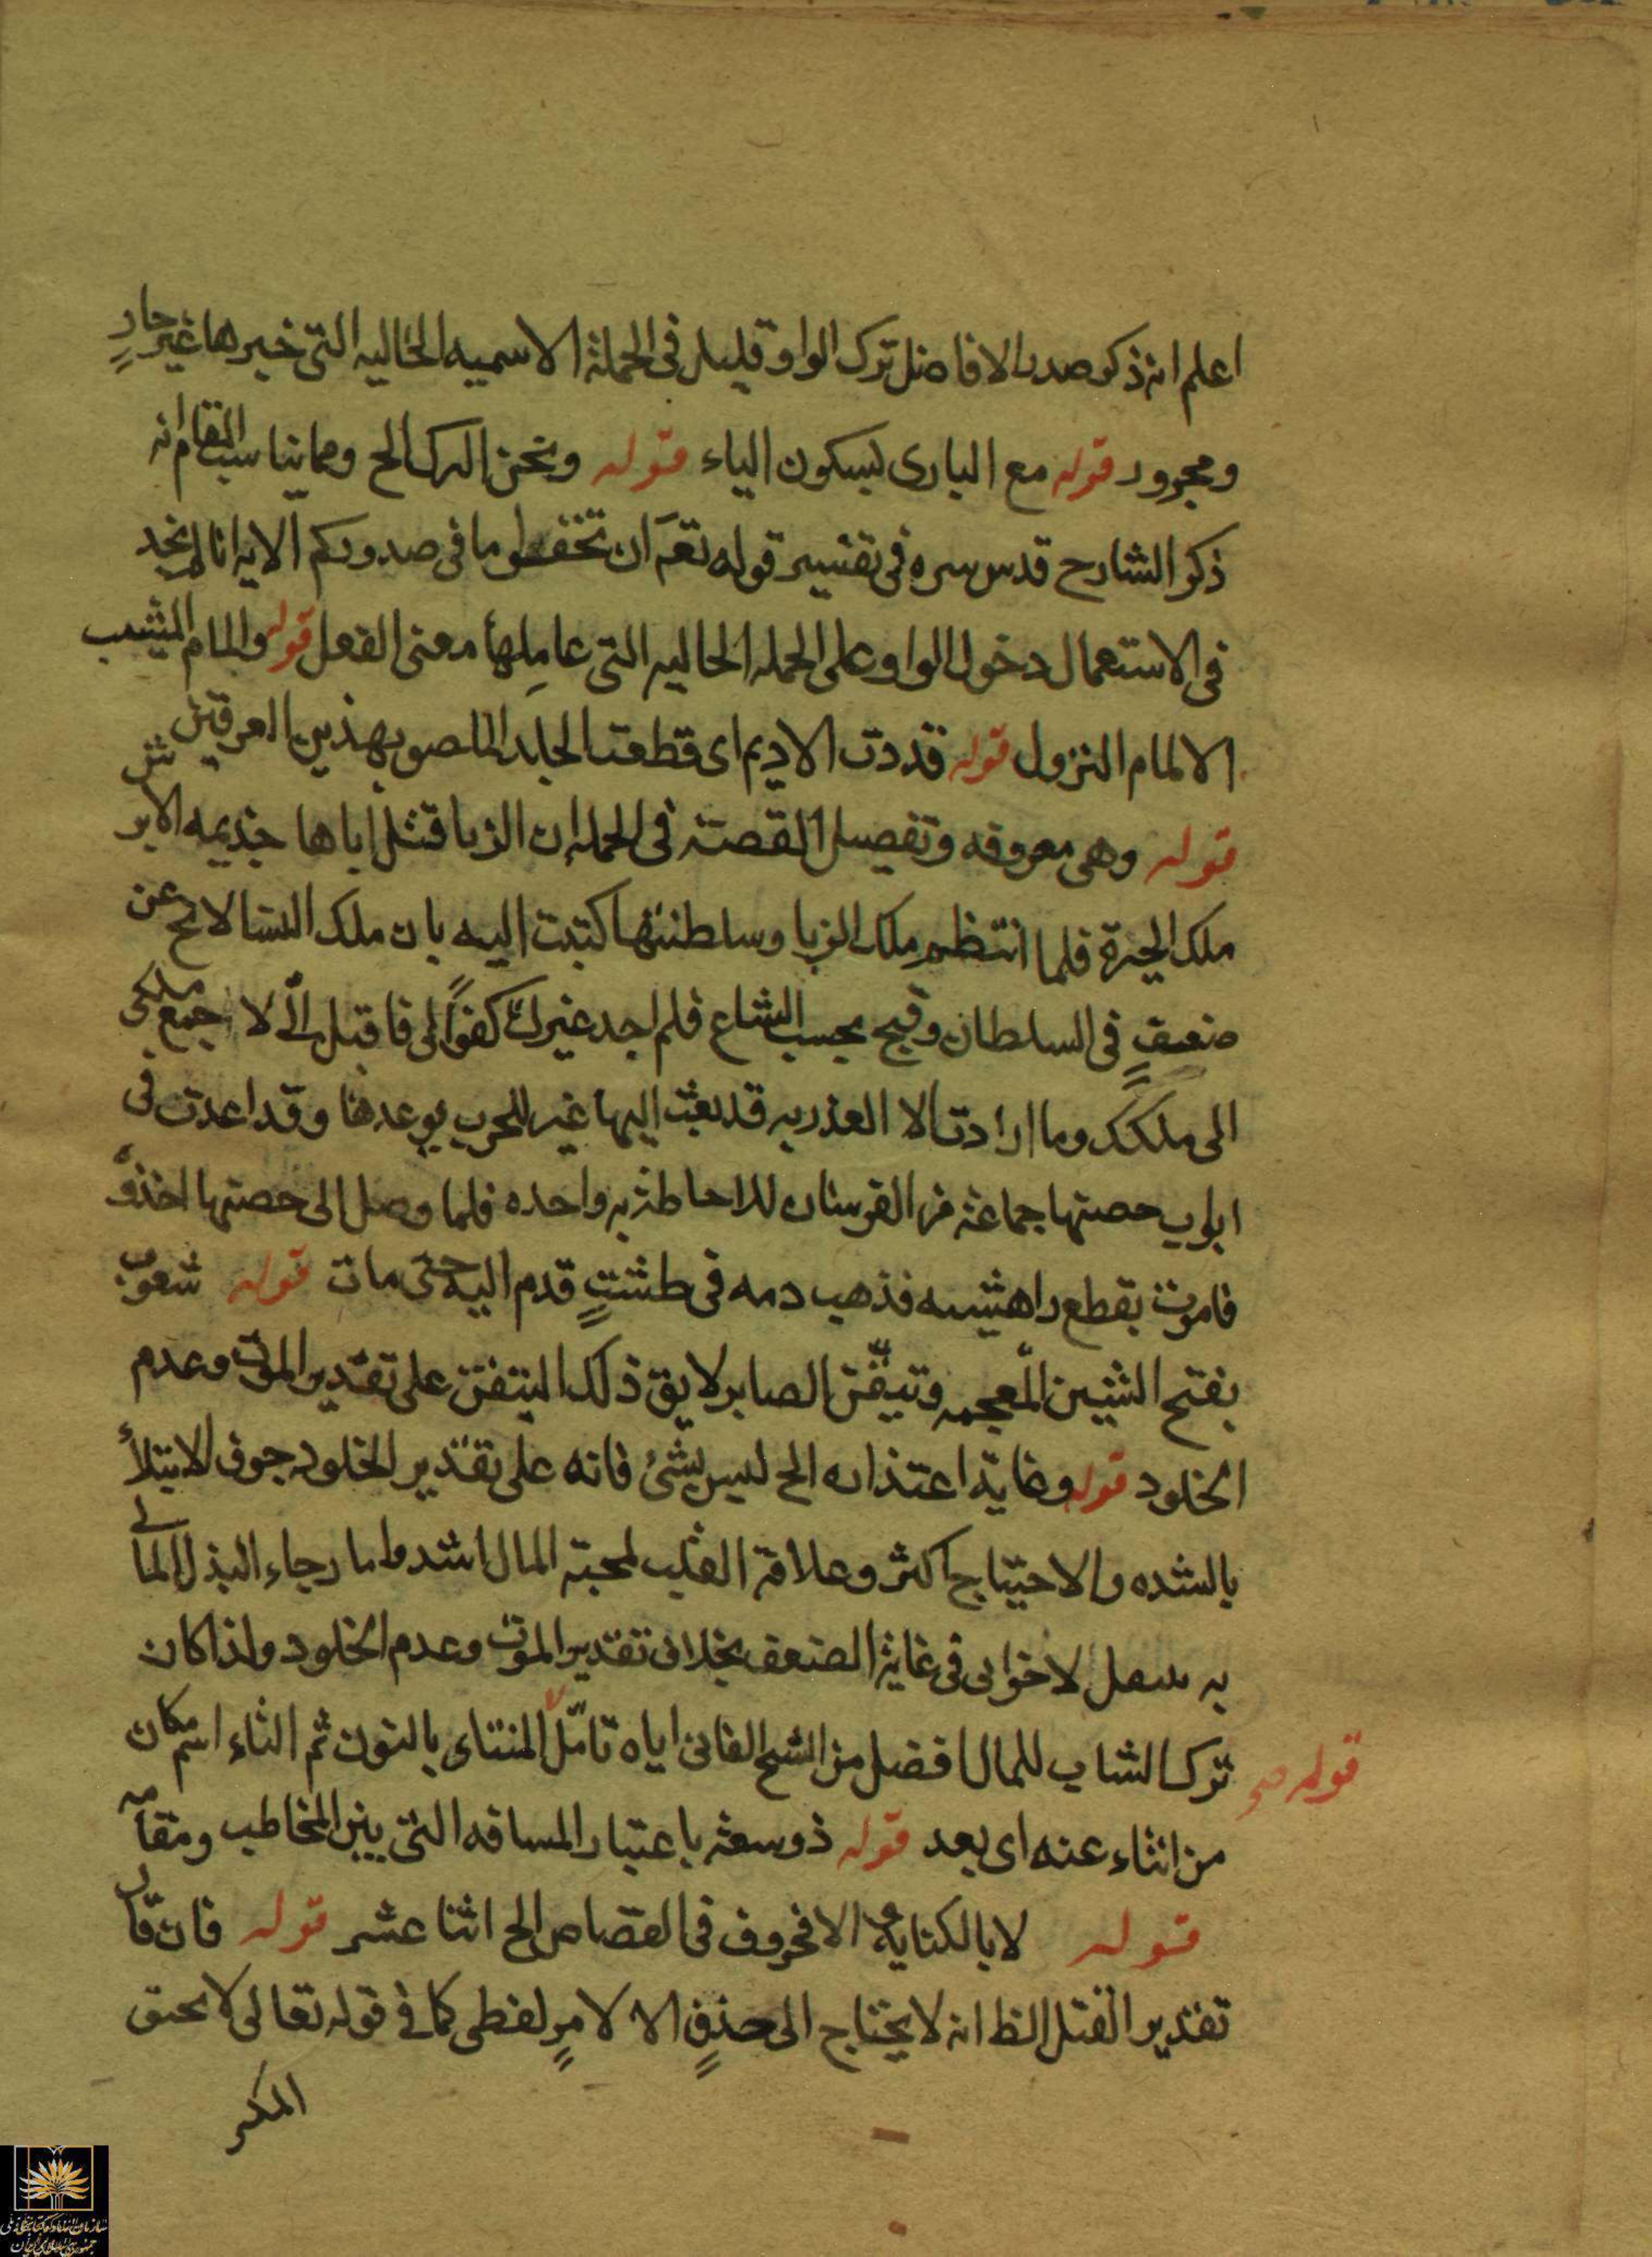 اعلم انه ذكر صدر الافاضل ترك الواو قليل فى الجملة الاسميه الحاليه التى خبرها غير جارٍ
ومجرور قوله مع البارى بسكون الياء قوله ونحن الركب الخ ومما يناسب المقام انه
ذكر الشارح قدس سره فى تفسير قوله تعم ان تخفوا ما فى صدوركم الايه انا لم نجد
فى الاستعمال دخول الواو على الجمله الحاليه التى عاملها معنى الفعل قوله والمام المشيب
الالمام النزول قوله قددت الاديم اى قطعت الجلد الملصوق بهذين العرقين
قوله وهى معروفه وتفصيل القصة فى الجمله ان الزبا قتل اباها جذيمه الابرش
ملك الحيرة فلما انتظم ملك الزبا وسلطنتها كتبت اليه بان ملك النسا لا يخ عن
ضعفٍ فى السلطان وقبح بحسب الشاع فلم اجد غيرك كفوًا لى فاقبل الىّ لا جمع ملكى
الى ملكك وما ارادت الا الغدر به قد بعث اليها غير للحرب بوعدها وقد اعدت فى
ابواب حصتها جماعة من الفرسان للاحاطة به واحده فلما وصل الى حصتها اخذوه
فامرت بقطع راهشيه فذهب دمه فى طشتٍ قدم اليه حتى مات قوله شعوب
بفتح الشين المعجمه وتيقّن الصابر لا يق ذلك التيقن على تقدير الموت وعدم
الخلود قوله وغاية اعتذاره الخ ليس بشئ فانه على تقدير الخلود خوف الابتلأ
بالشده والاحتياج اكثر وعلاقة القلب لمحبة المال اشد واما رجاء البذل المالى
به سهل لاخوانى فى غاية الضعف بخلاف تقدير الموت وعدم الخلود ولذا كان
ترك الشاب للمال افضل من الشيخ الفانى اياه تامّل المنتاى بالنون ثم التاء اسم مكان
قوله صح
من انتاء عنه اى بعد قوله ذو سعة باعتبار المسافه التى بين المخاطب ومقامه
قوله لا بالكتابه الا فحروف فى القصاص الخ اثنا عشر قوله فان قال
تقدير القتل الظ انه لا يحتاج الى حذفٍ الا لامرٍ لفظى كما فى قوله تعالى لا يحيق
المكر